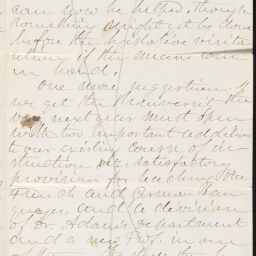 can you be helped, though
something might yet be done
before the Legislative visita
when if the means were
in hand.
One more suggestion. If
we get the the
next year must open
with two important additions
to our existing course of in-
struction viz. satisfactory
provision for teaching the
French and German lan-
guages, and a division
of Dr. Adams's department
and a new Prof. in one